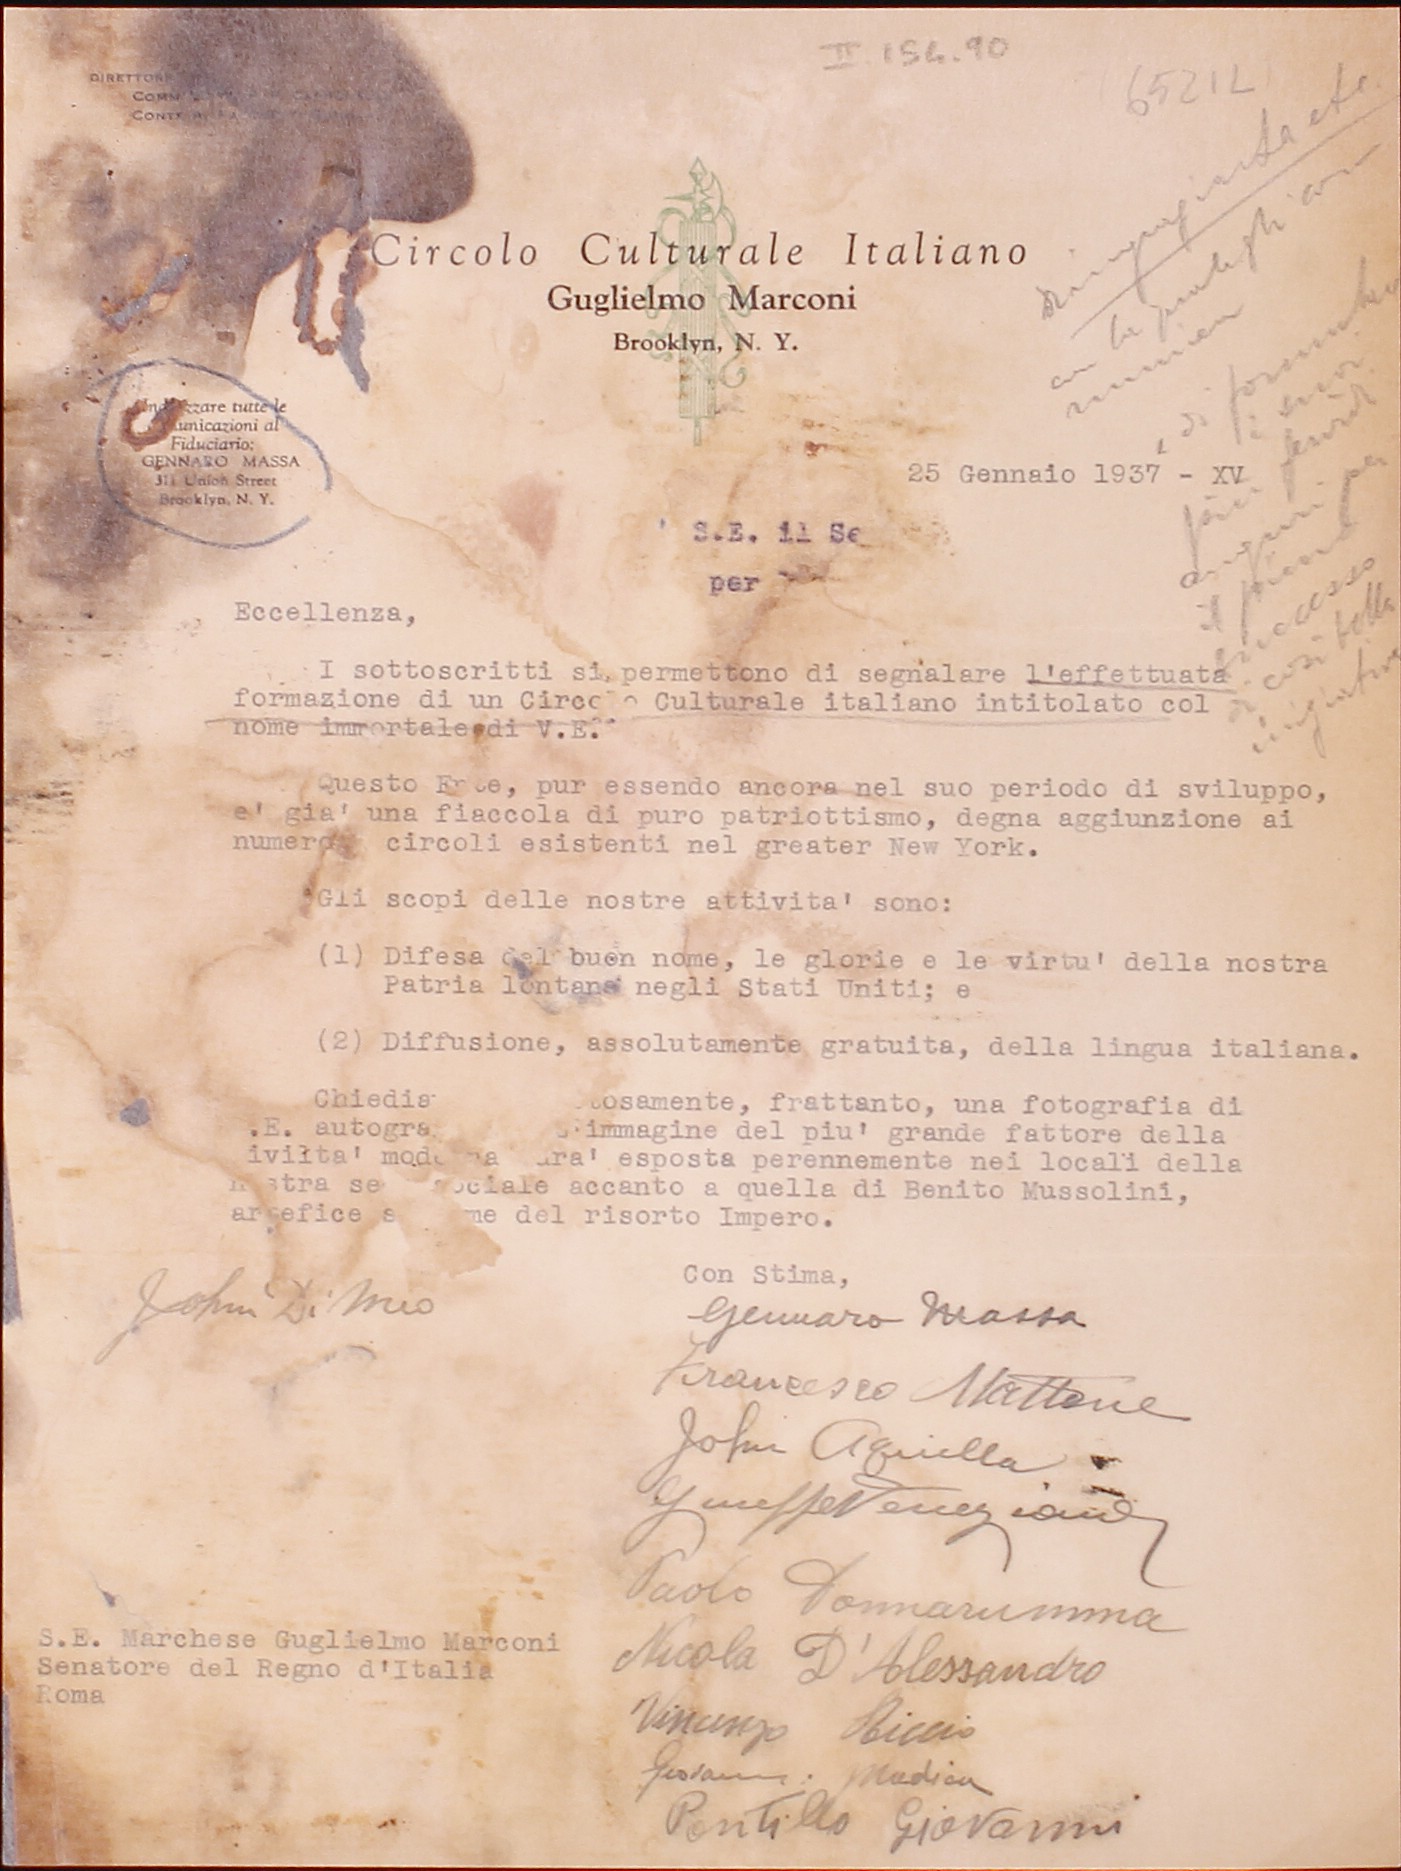 II 154.90
(65212)
DIRETTORE
Circolo Culturale Italiano
Guglielmo Marconi
Brooklyn, N. Y.
tutte le
al
Fiduciario:
GENNARO MASSA
311 Union Street
Brooklyn, N. Y.
25 Gennaio 1937 - XV
S.E. il Se
per
Eccellenza,
I sottoscritti si permettono di segnalare l'effettuata
formazione di un Circo Culturale italiano intitolato col
nome immortale di V.E.
Questo Ente, pur essendo ancora nel suo periodo di sviluppo,
e' gia' una fiaccola di puro patriottismo, degna aggiunzione ai
numeros circoli esistenti nel greater New York.
Gli scopi delle nostre attivita' sono:
(1) Difesa del buon nome, le glorie e le virtu' della nostra
Patria lontana negli Stati Uniti; e
(2) Diffusione, assolutamente gratuita, della lingua italiana.
Chiedia tosamente, frattanto, una fotografia di
.E. autogra immagine del piu' grande fattore della
ivilta' moderna ara' esposta perennemente nei locali della
nostra se sociale accanto a quella di Benito Mussolini,
artefice s me del risorto Impero.
Con Stima,
John Di Meo
Gennaro Massa
Francesco Mattone
John Aquella
Giuseppe Veneziano
Paolo Donnarumma
Nicola D'Alessandro
Vincenzo Riccio
Giovanni Modica
Pontillo Giovanni
S.E. Marchese Guglielmo Marconi
Senatore del Regno d'Italia
Roma
successo
così bella